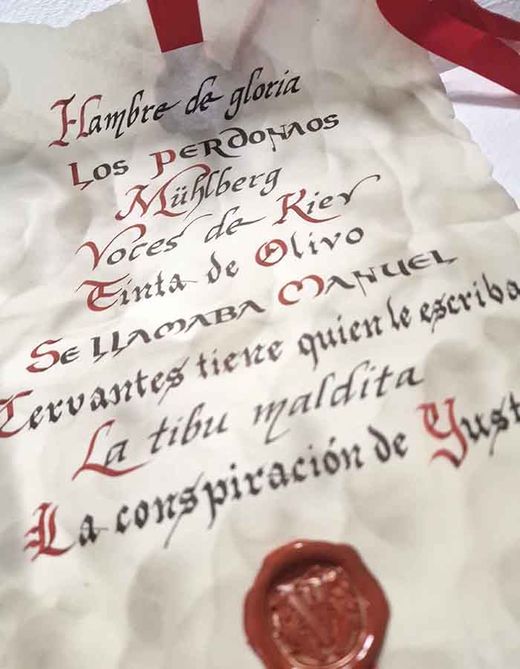 Hambre de gloria
Los perdonaos
Mühlberg
Voces de Kiev
Tinta de Olivo
Se llamaba Manuel
Cervantes tiene quien le escriba
La tibu maldita
La conspiración de Yust